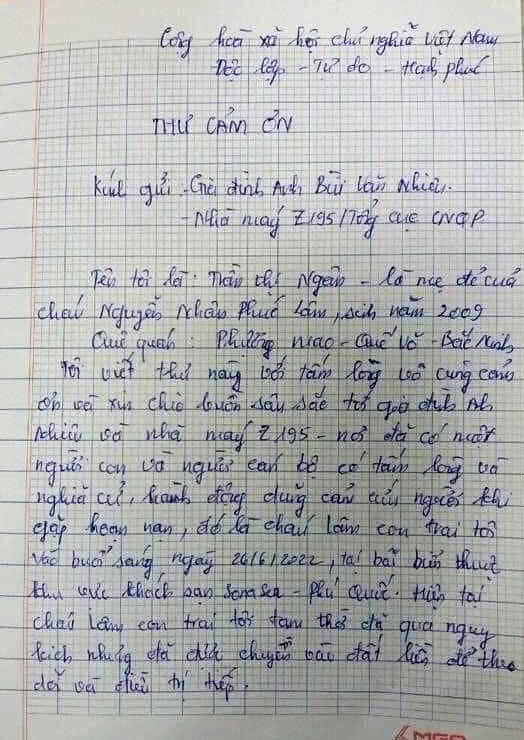 Cộng hoà xã hội chủ nghĩa Việt Nam
Độc lập - Tự do - Hạnh phúc
THƯ CẢM ƠN
Kính gửi - Gia đình Anh Bùi Văn Nhiên.
- Nhà máy Z195/Tổng cục CNQP
Tên tôi là: Trần thị Ngân - là mẹ đẻ của
cháu Nguyễn Nhân Phúc Lâm, sinh năm 2009
Quê quán: Phương mao - Quế Võ - Bắc Ninh
Tôi viết thư này với tấm lòng vô cùng cảm
ơn và xin chia buồn sâu sắc tới gia đình Anh
Nhiên và nhà máy Z195 - nơi đã có một
người con và người cán bộ có tấm lòng và
nghĩa cử, hành động dũng cảm cứu người khi
gặp hoạn nạn, đó là cháu Lâm con trai tôi
vào buổi sáng ngày 26/6/2022, tại bãi biển thuộc
khu vực khách sạn Sonasea - Phú Quốc. Hiện tại
cháu Lâm con trai tôi tạm thời đã qua nguy
kịch nhưng đã được chuyển vào đất liền để theo
dõi và điều trị tiếp.